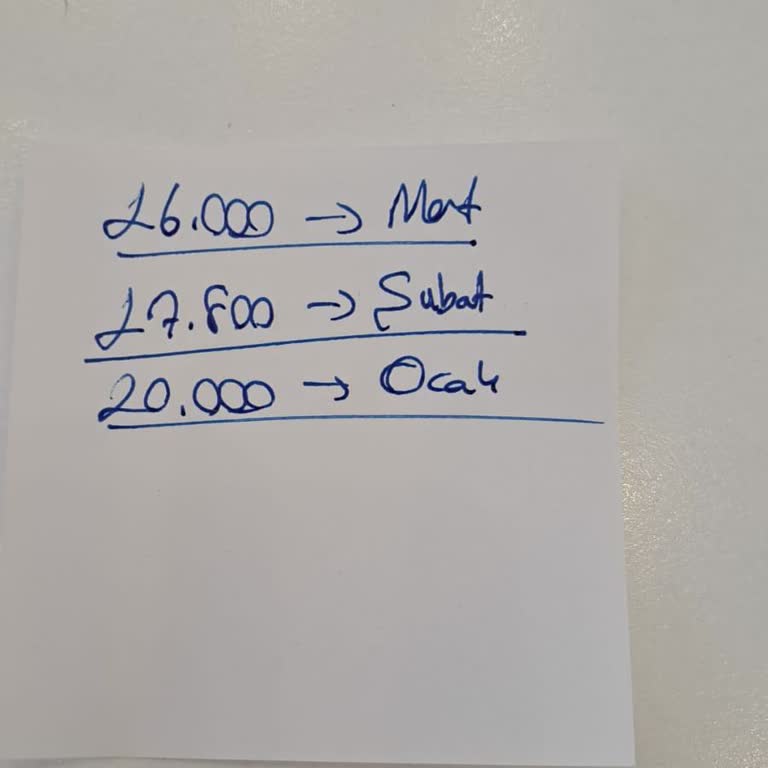 26.000 → Mart
27.800 → Şubat
20.000 → Ocak